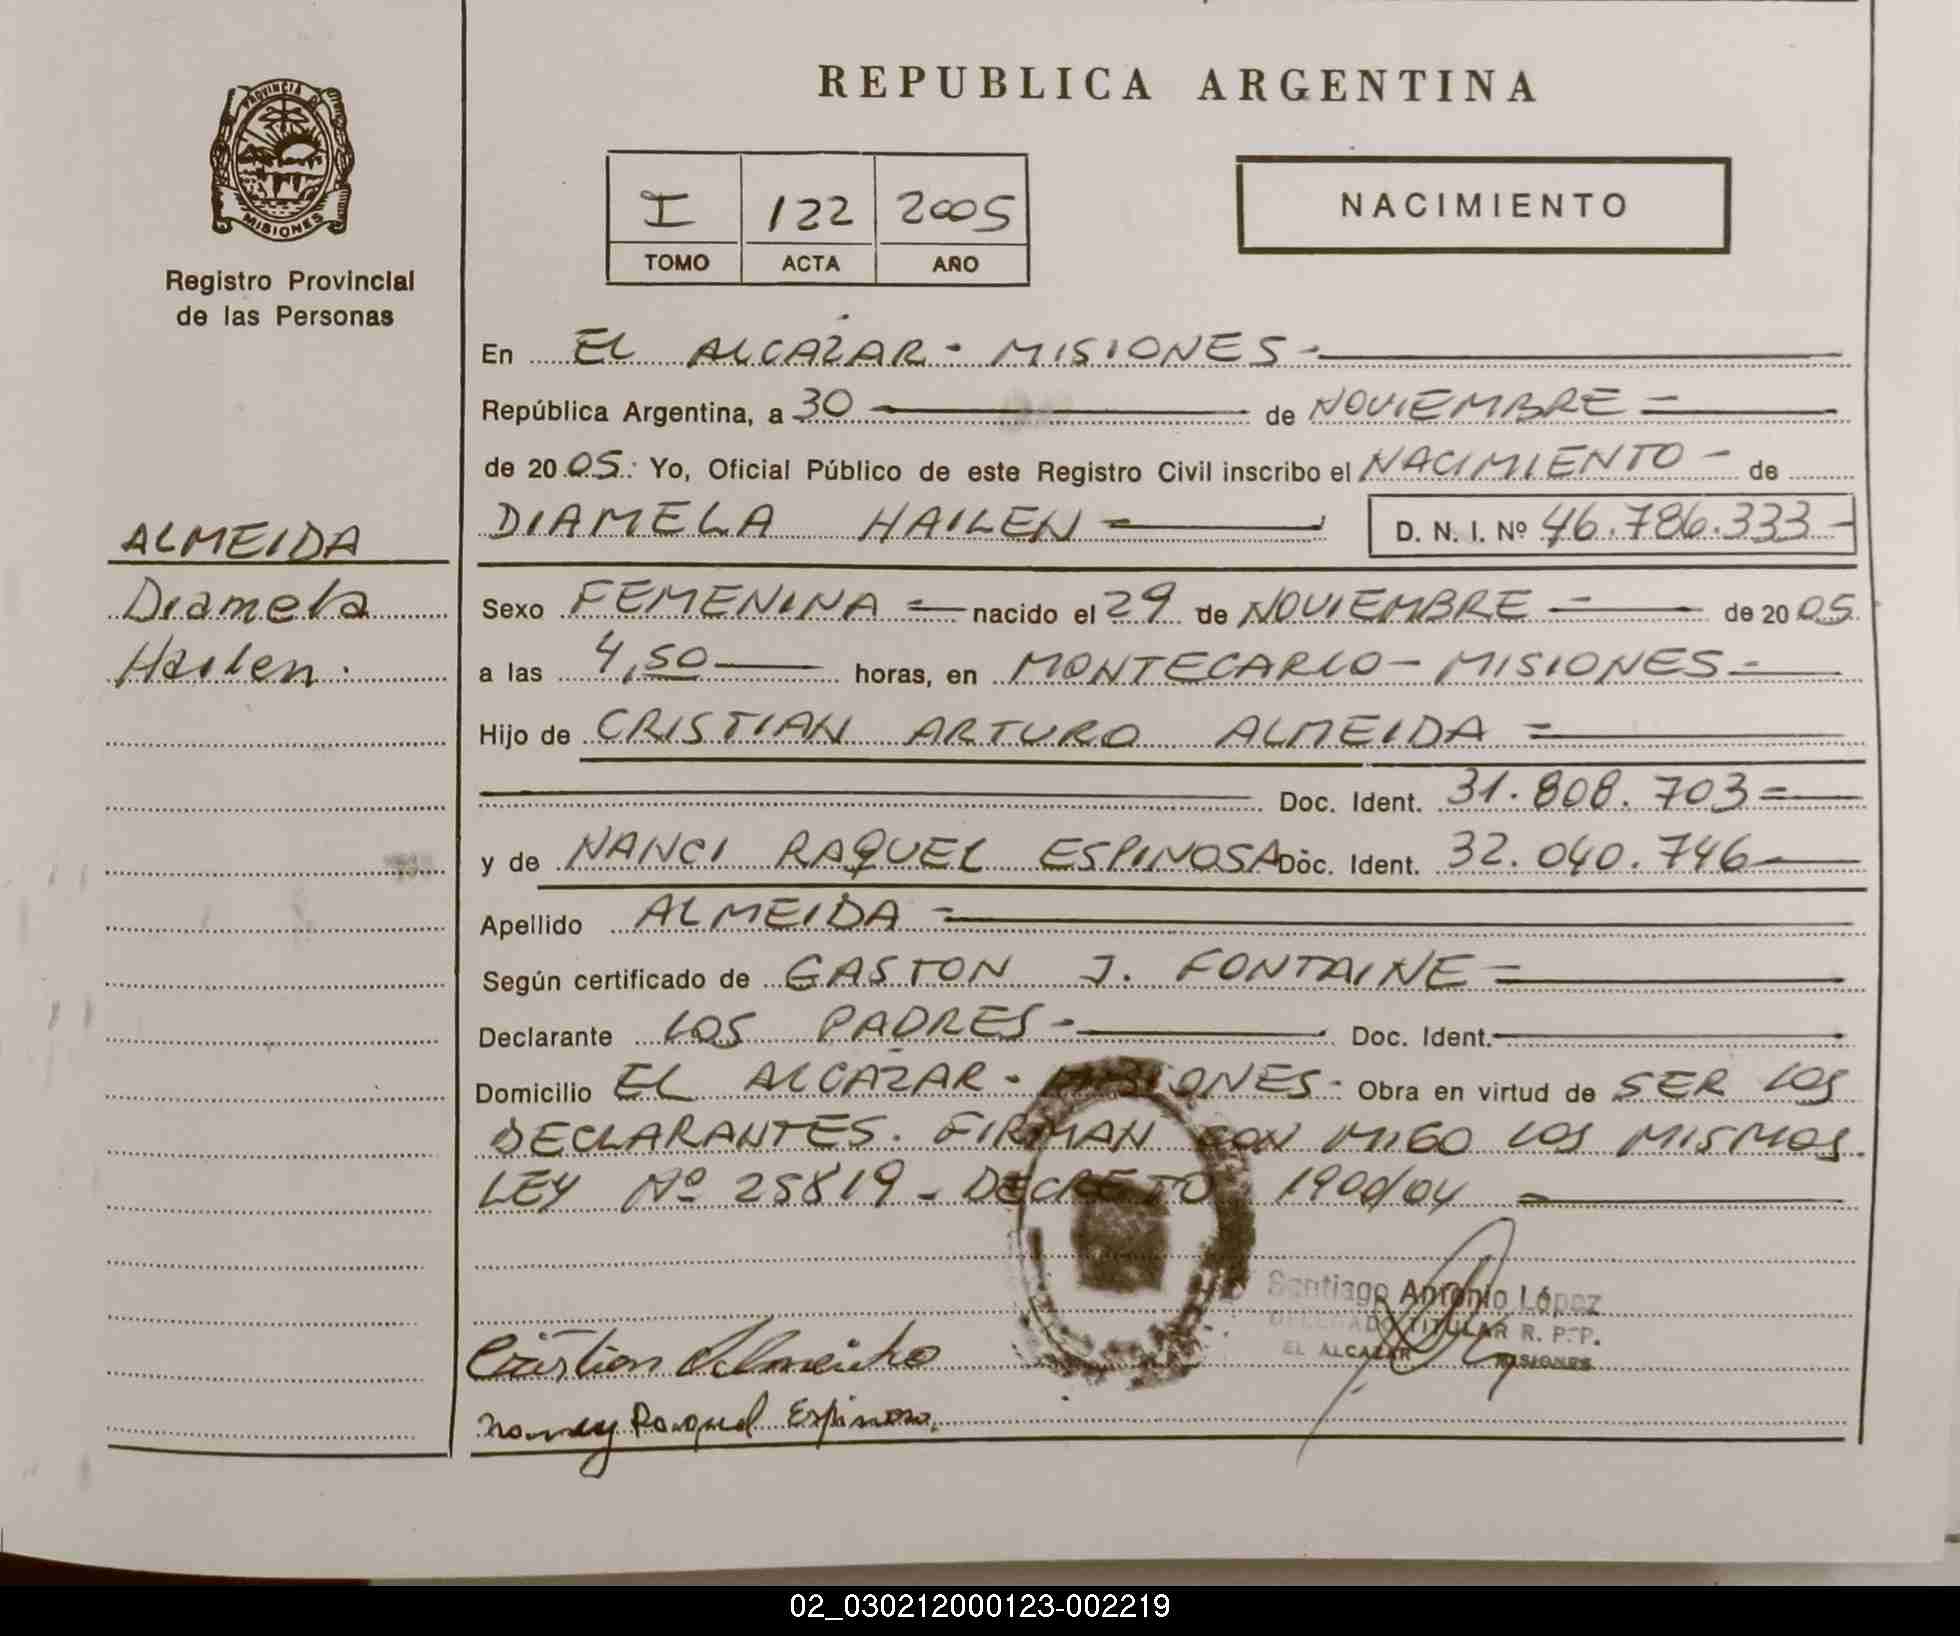 REPUBLICA ARGENTINA
PROVINCIA D
MISIONES
Registro Provincial
de las Personas
I 122 2005
TOMO ACTA AÑO
NACIMIENTO
En EL ALCAZAR - MISIONES -
República Argentina, a 30 de NOVIEMBRE
de 20 05. Yo, Oficial Público de este Registro Civil inscribo el NACIMIENTO - de
DIAMELA HAILEN D. N. I. Nº 46.786.333 -
ALMEIDA
Diamela
Hailen.
Sexo FEMENINA nacido el 29 de NOVIEMBRE de 20 05
a las 4,50 horas, en MONTECARLO - MISIONES -
Hijo de CRISTIAN ARTURO ALMEIDA
Doc. Ident. 31.808.703
y de NANCI RAQUEL ESPINOSA Doc. Ident. 32.040.746
Apellido ALMEIDA
Según certificado de GASTON J. FONTAINE
Declarante LOS PADRES - Doc. Ident.
Domicilio EL ALCAZAR - MISIONES - Obra en virtud de SER LOS
DECLARANTES. FIRMAN CON MIGO LOS MISMOS.
LEY Nº 25819 - DECRETO 1900/04
Santiago Antonio López
DELEGADO TITULAR R. P. P.
EL ALCAZAR MISIONES
Cristian Almeida
Nancy Raquel Espinosa.
02_030212000123-002219